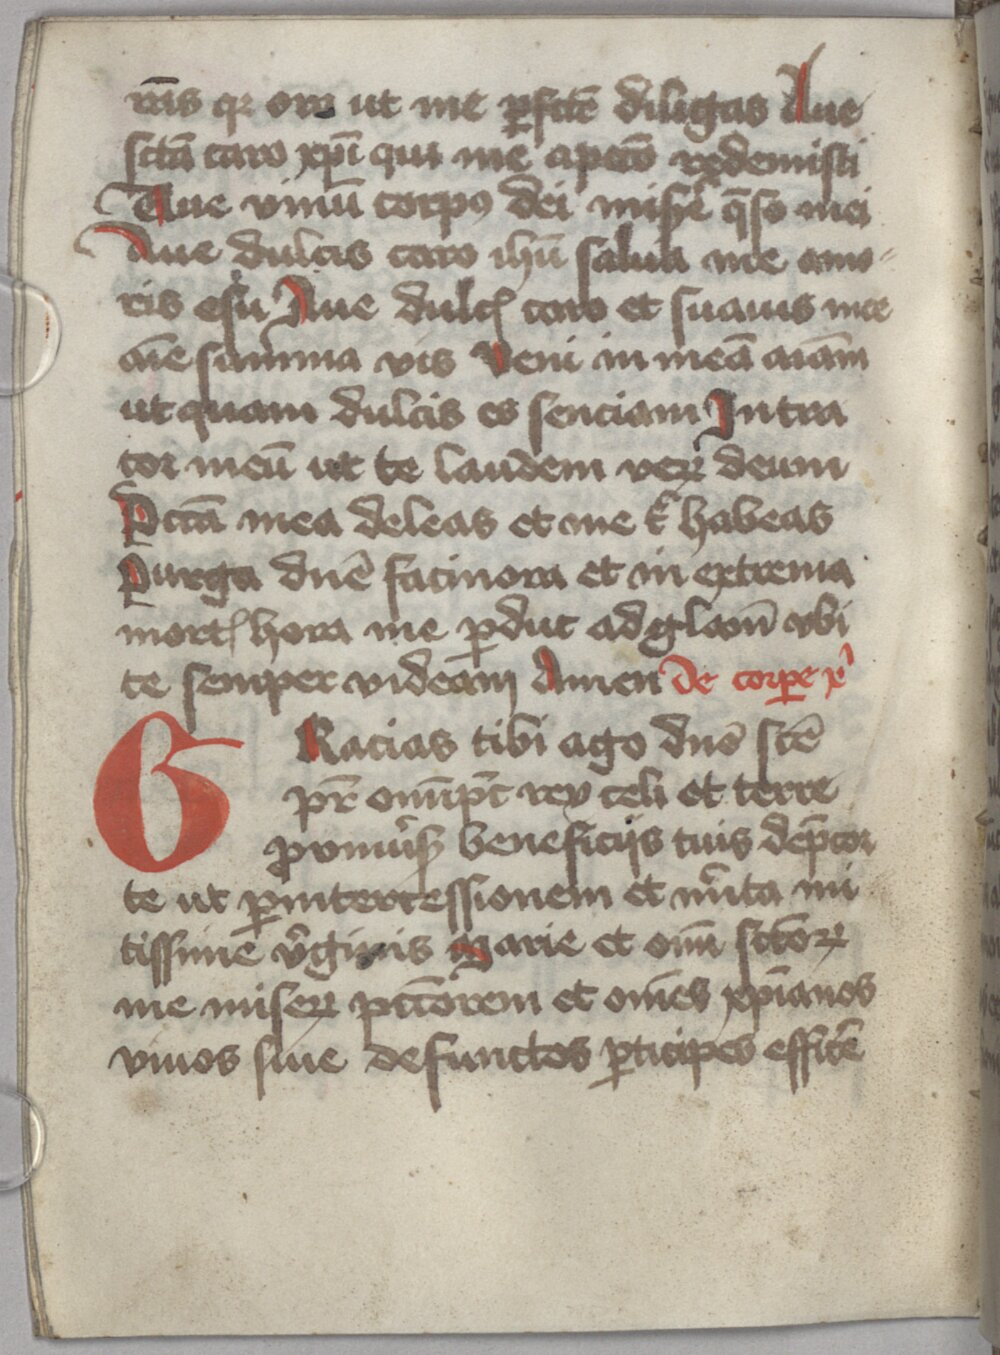 rr̄is qꝫ oro ut me ꝑfctē diligas Aue
sctā caro xp̄i qui me a pctō redemisti
Aue viuū corpꝰ dei misere q̄so mei
Aue dulcis caro ihū salua me amo-
ris esu Aue dulcꝭ caro et suauis mee
aīe summa vis Veni in meā aīam
ut quam dulcis es senciam Intra
cor meū ut te laudem veꝝ deum
Pctā mea deleas et me habeas
Purga dn̄e facinora et in extrema
mortꝭ hora me ꝑduc ad gloriā vbi
te semper videam Amen de corꝑe xⁱ
GRacias tibi ago dn̄e sctē
pr̄ omīpt̄ rex celi et terre
beneficijs tuis dep̄cor
te ut ꝑ intercessionem et mīta mi
tissime v̄ginis Marie et om̄ sctōꝝ
me miseꝝ pctōrem et om̄es xp̄ianos
viuos siue defunctos ꝑticipes efficē